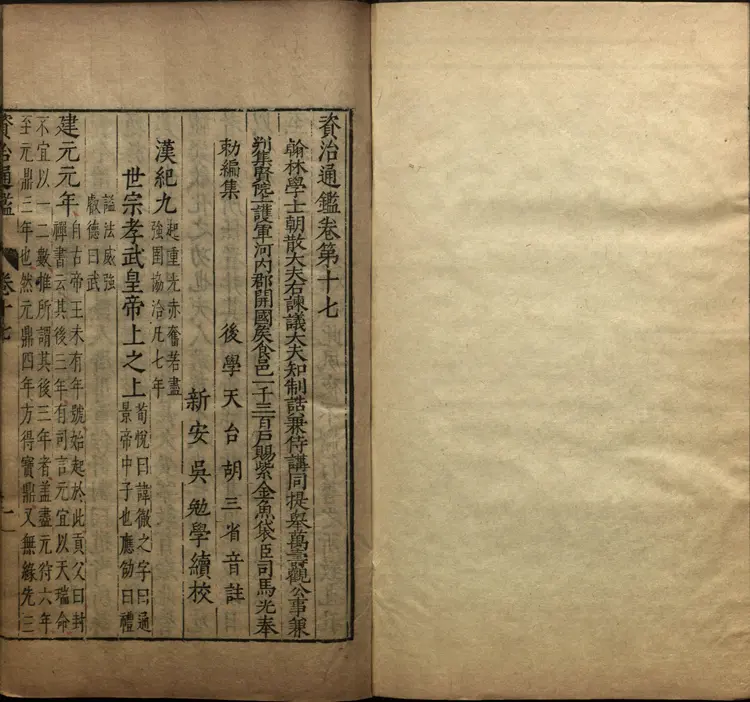 資治通鑑卷第十七
翰林學士朝散大夫右諫議大夫知制誥兼侍講同提舉萬壽觀公事兼
判集賢院上護軍河內郡開國矦食邑一千三百戶賜紫金魚袋臣司馬光奉
勅編集
後學天台胡三省音註
新安吳勉學續校
漢紀九
起重光赤奮若盡
強圉協洽凡七年
世宗孝武皇帝上之上
荀悅曰諱徹之字曰通
景帝中子也應劭曰禮
謚法威強
叡德曰武
建元元年
自古帝王未有年號始起於此貢父曰封
禪書云其後三年有司言元宜以天瑞命
不宜以一二數推所謂其後三年者盖盡元狩六年
至元鼎三年也然元鼎四年方得寶鼎又無緣先三
資治通鑑
卷十七